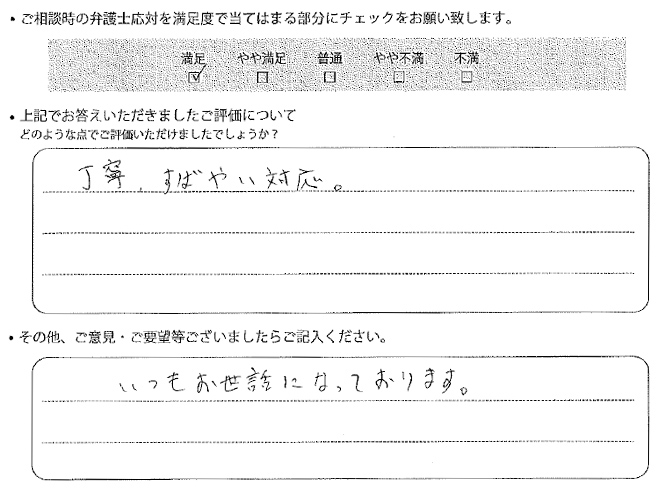 • ご相談時の弁護士応対を満足度で当てはまる部分にチェックをお願い致します。
満足 やや満足 普通 やや不満 不満
☑ □ □ □ □
• 上記でお答えいただきましたご評価について
どのような点でご評価いただけましたでしょうか？
丁寧、すばやい対応。
• その他、ご意見・ご要望等ございましたらご記入ください。
いつもお世話になっております。